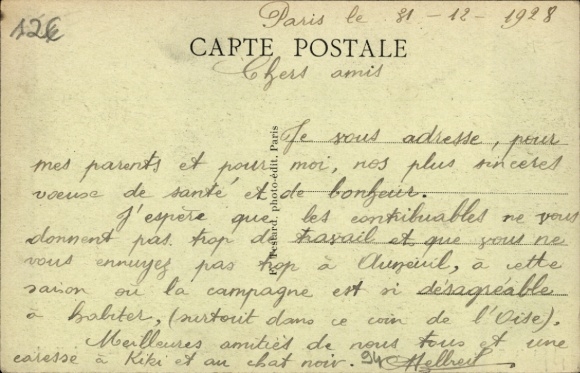 12€
Paris le 31-12-1928
CARTE POSTALE
Chers amis
Je vous adresse, pour
mes parents et pour moi, nos plus sincères
voeux de santé et de bonheur.
J'espère que les contribuables ne vous
donnent pas trop de travail et que vous ne
vous ennuyez pas trop à Auneuil, à cette
saison où la campagne est si désagréable
à habiter, (surtout dans ce coin de l'Oise).
Meilleures amitiés de nous tous et une
caresse à Kiki et au chat noir.
Restard, photo-édit. Paris